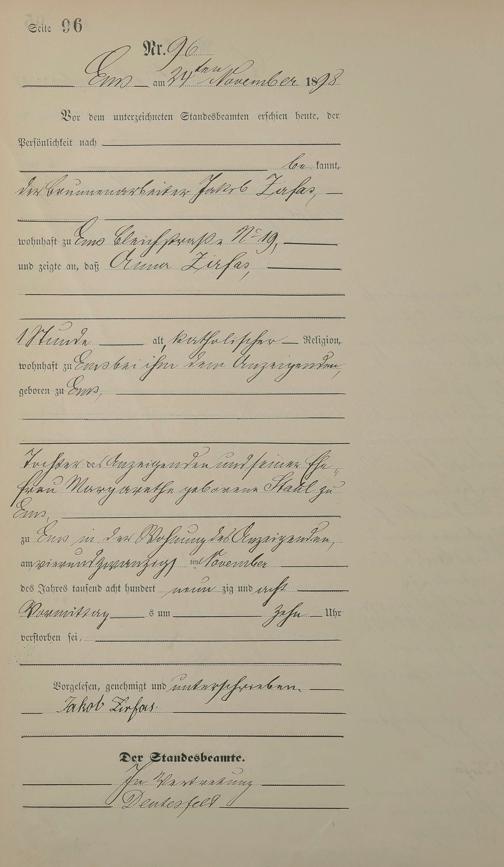 Seite 96
Nr. 96
Ems am 24ten November 1898
Vor dem unterzeichneten Standesbeamten erschien heute, der
Persönlichkeit nach
be kannt,
der Brunnenarbeiter Jakob Zirfas,
wohnhaft zu Ems Bleichstraße No 19,
und zeigte an, daß Anna Zirfas,
1 Stunde alt, katholischer Religion,
wohnhaft zu Ems bei ihm dem Anzeigenden,
geboren zu Ems,
Tochter des Anzeigenden und seiner Ehe-
frau Margarethe geborene Stahl zu
Ems,
zu Ems in der Wohnung des Anzeigenden,
am vierundzwanzigsten November
des Jahres tausend acht hundert neun zig und acht
Vormittag s um zehn Uhr
verstorben sei.
Vorgelesen, genehmigt und unterschrieben.
Jakob Zirfas.
Der Standesbeamte.
In Vertretung